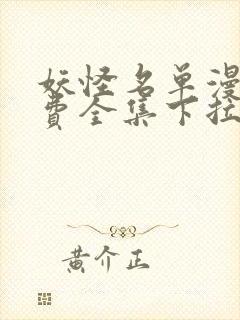 妖怪名单漫
费全集下拉
黄介正